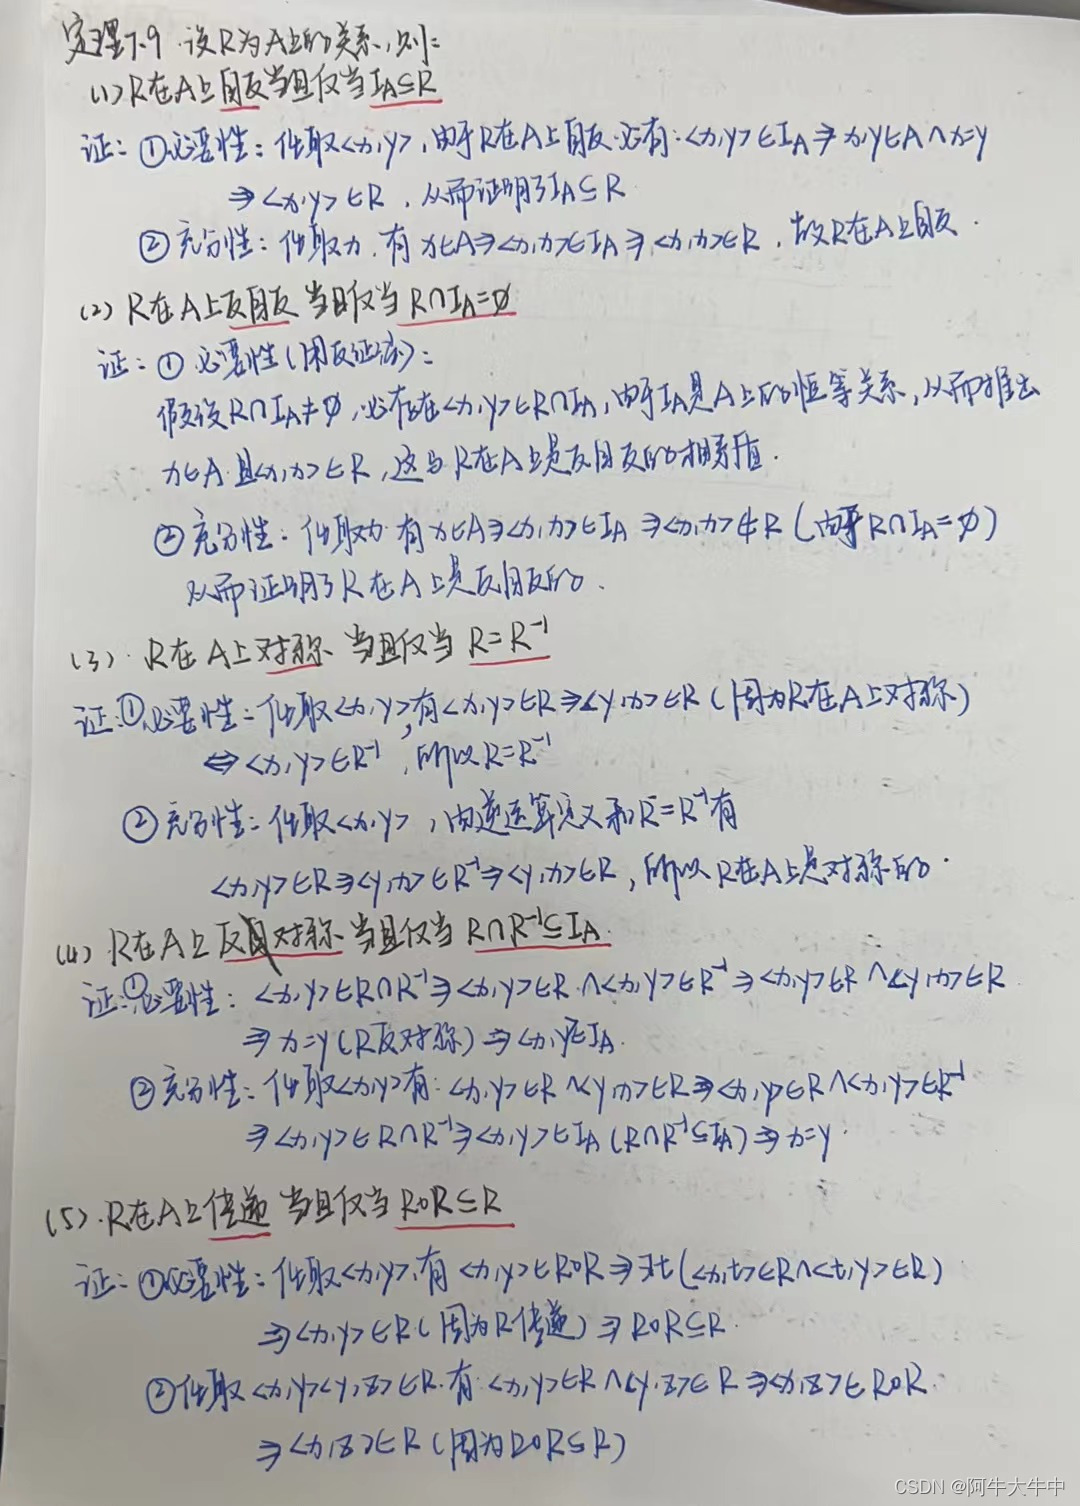 定理7.9 设R为A上的关系,则:
(1)R在A上自反当且仅当I_A⊆R
证:①必要性:任取<x,y>,由于R在A上自反必有:<x,y>∈I_A⇒x,y∈A∧x=y
⇒<x,y>∈R,从而证明了I_A⊆R
②充分性:任取x,有x∈A⇒<x,x>∈I_A⇒<x,x>∈R,故R在A上自反.
(2)R在A上反自反当且仅当R∩I_A=∅
证:①必要性(用反证法):
假设R∩I_A≠∅,必存在<x,y>∈R∩I_A,由于I_A是A上的恒等关系,从而推出
x∈A且<x,x>∈R,这与R在A上是反自反的相矛盾.
②充分性:任取x有x∈A⇒<x,x>∈I_A⇒<x,x>∉R(由于R∩I_A=∅)
从而证明了R在A上是反自反的.
(3).R在A上对称当且仅当R=R⁻¹
证:①必要性:任取<x,y>,有<x,y>∈R⇒<y,x>∈R(因为R在A上对称)
⇔<x,y>∈R⁻¹,所以R=R⁻¹
②充分性:任取<x,y>,由逆运算定义和R=R⁻¹有
<x,y>∈R⇒<y,x>∈R⁻¹⇒<y,x>∈R,所以R在A上是对称的.
(4)R在A上反对称当且仅当R∩R⁻¹⊆I_A.
证:①必要性:<x,y>∈R∩R⁻¹⇒<x,y>∈R∧<x,y>∈R⁻¹⇒<x,y>∈R∧<y,x>∈R
⇒x=y(R反对称)⇒<x,y>∈I_A.
②充分性:任取<x,y>有:<x,y>∈R∧<y,x>∈R⇒<x,y>∈R∧<x,y>∈R⁻¹
⇒<x,y>∈R∩R⁻¹⇒<x,y>∈I_A(R∩R⁻¹⊆I_A)⇒x=y.
(5).R在A上传递当且仅当R∘R⊆R
证:①必要性:任取<x,y>,有<x,y>∈R∘R⇒∃t(<x,t>∈R∧<t,y>∈R)
⇒<x,y>∈R(因为R传递)⇒R∘R⊆R.
②任取<x,y><y,z>∈R.有:<x,y>∈R∧<y,z>∈R⇒<x,z>∈R∘R.
⇒<x,z>∈R(因为R∘R⊆R)
CSDN @阿牛大牛中